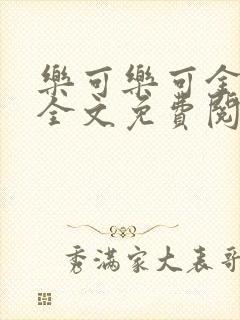 樂可樂可全
全文免費閱
秀滿家大表哥